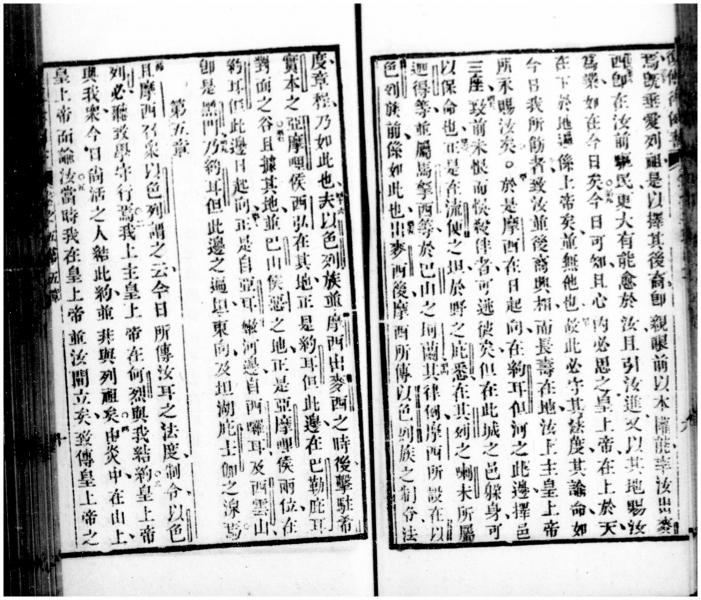 焉旣垂愛列祖是以擇其後裔卽親眼前以本權能率汝出麥
西卽在汝前驅民更大有能愈於汝且引汝進又以其地賜汝
爲業如在今日矣今日可知且心內必思之皇上帝在上於天
在下於地係上帝矣並無他也故此必守其法度其諭命如
今日我所飭者致汝並後裔興相而長壽在地法上主皇上帝
所永賜汝矣。於是摩西在日起向在約耳但河之此邊擇邑
三座致前未恨而悞殺律者可逃彼矣但在此城之邑躲身可
以保命也正是在流便之坦於野之庇悉在其列之喇末所屬
迦得等並屬馬拏西等於巴山之坷蘭其律倒摩西所設在以
色列族前像如此也出麥西後摩西所傳以色列族之制令法
度章程乃如此也夫以色列族並摩西出麥西之時後擊駐希
實本之亞摩哩侯西弘在其地正是約耳但此邊在巴勒庇耳
對面之谷且據其地並巴山侯惡之地正是亞摩哩侯兩位在
約耳但此邊日起向正是自亞耳嫩河邊自西囉耳及西雲山
卽是黑門乃約耳但此邊之遍坦東向及坦湖庇士伽之湶焉
第五章
且摩西召衆以色列謂之云今日所傳汝耳之法度制令以色
列必聽致學守行焉我上主皇上帝在何烈與我結約皇上帝
與我衆今日尚活之人結此約並非與列祖矣由炎中在山上
皇上帝面諭汝當時我在皇上帝並汝間立矣致傳皇上帝之